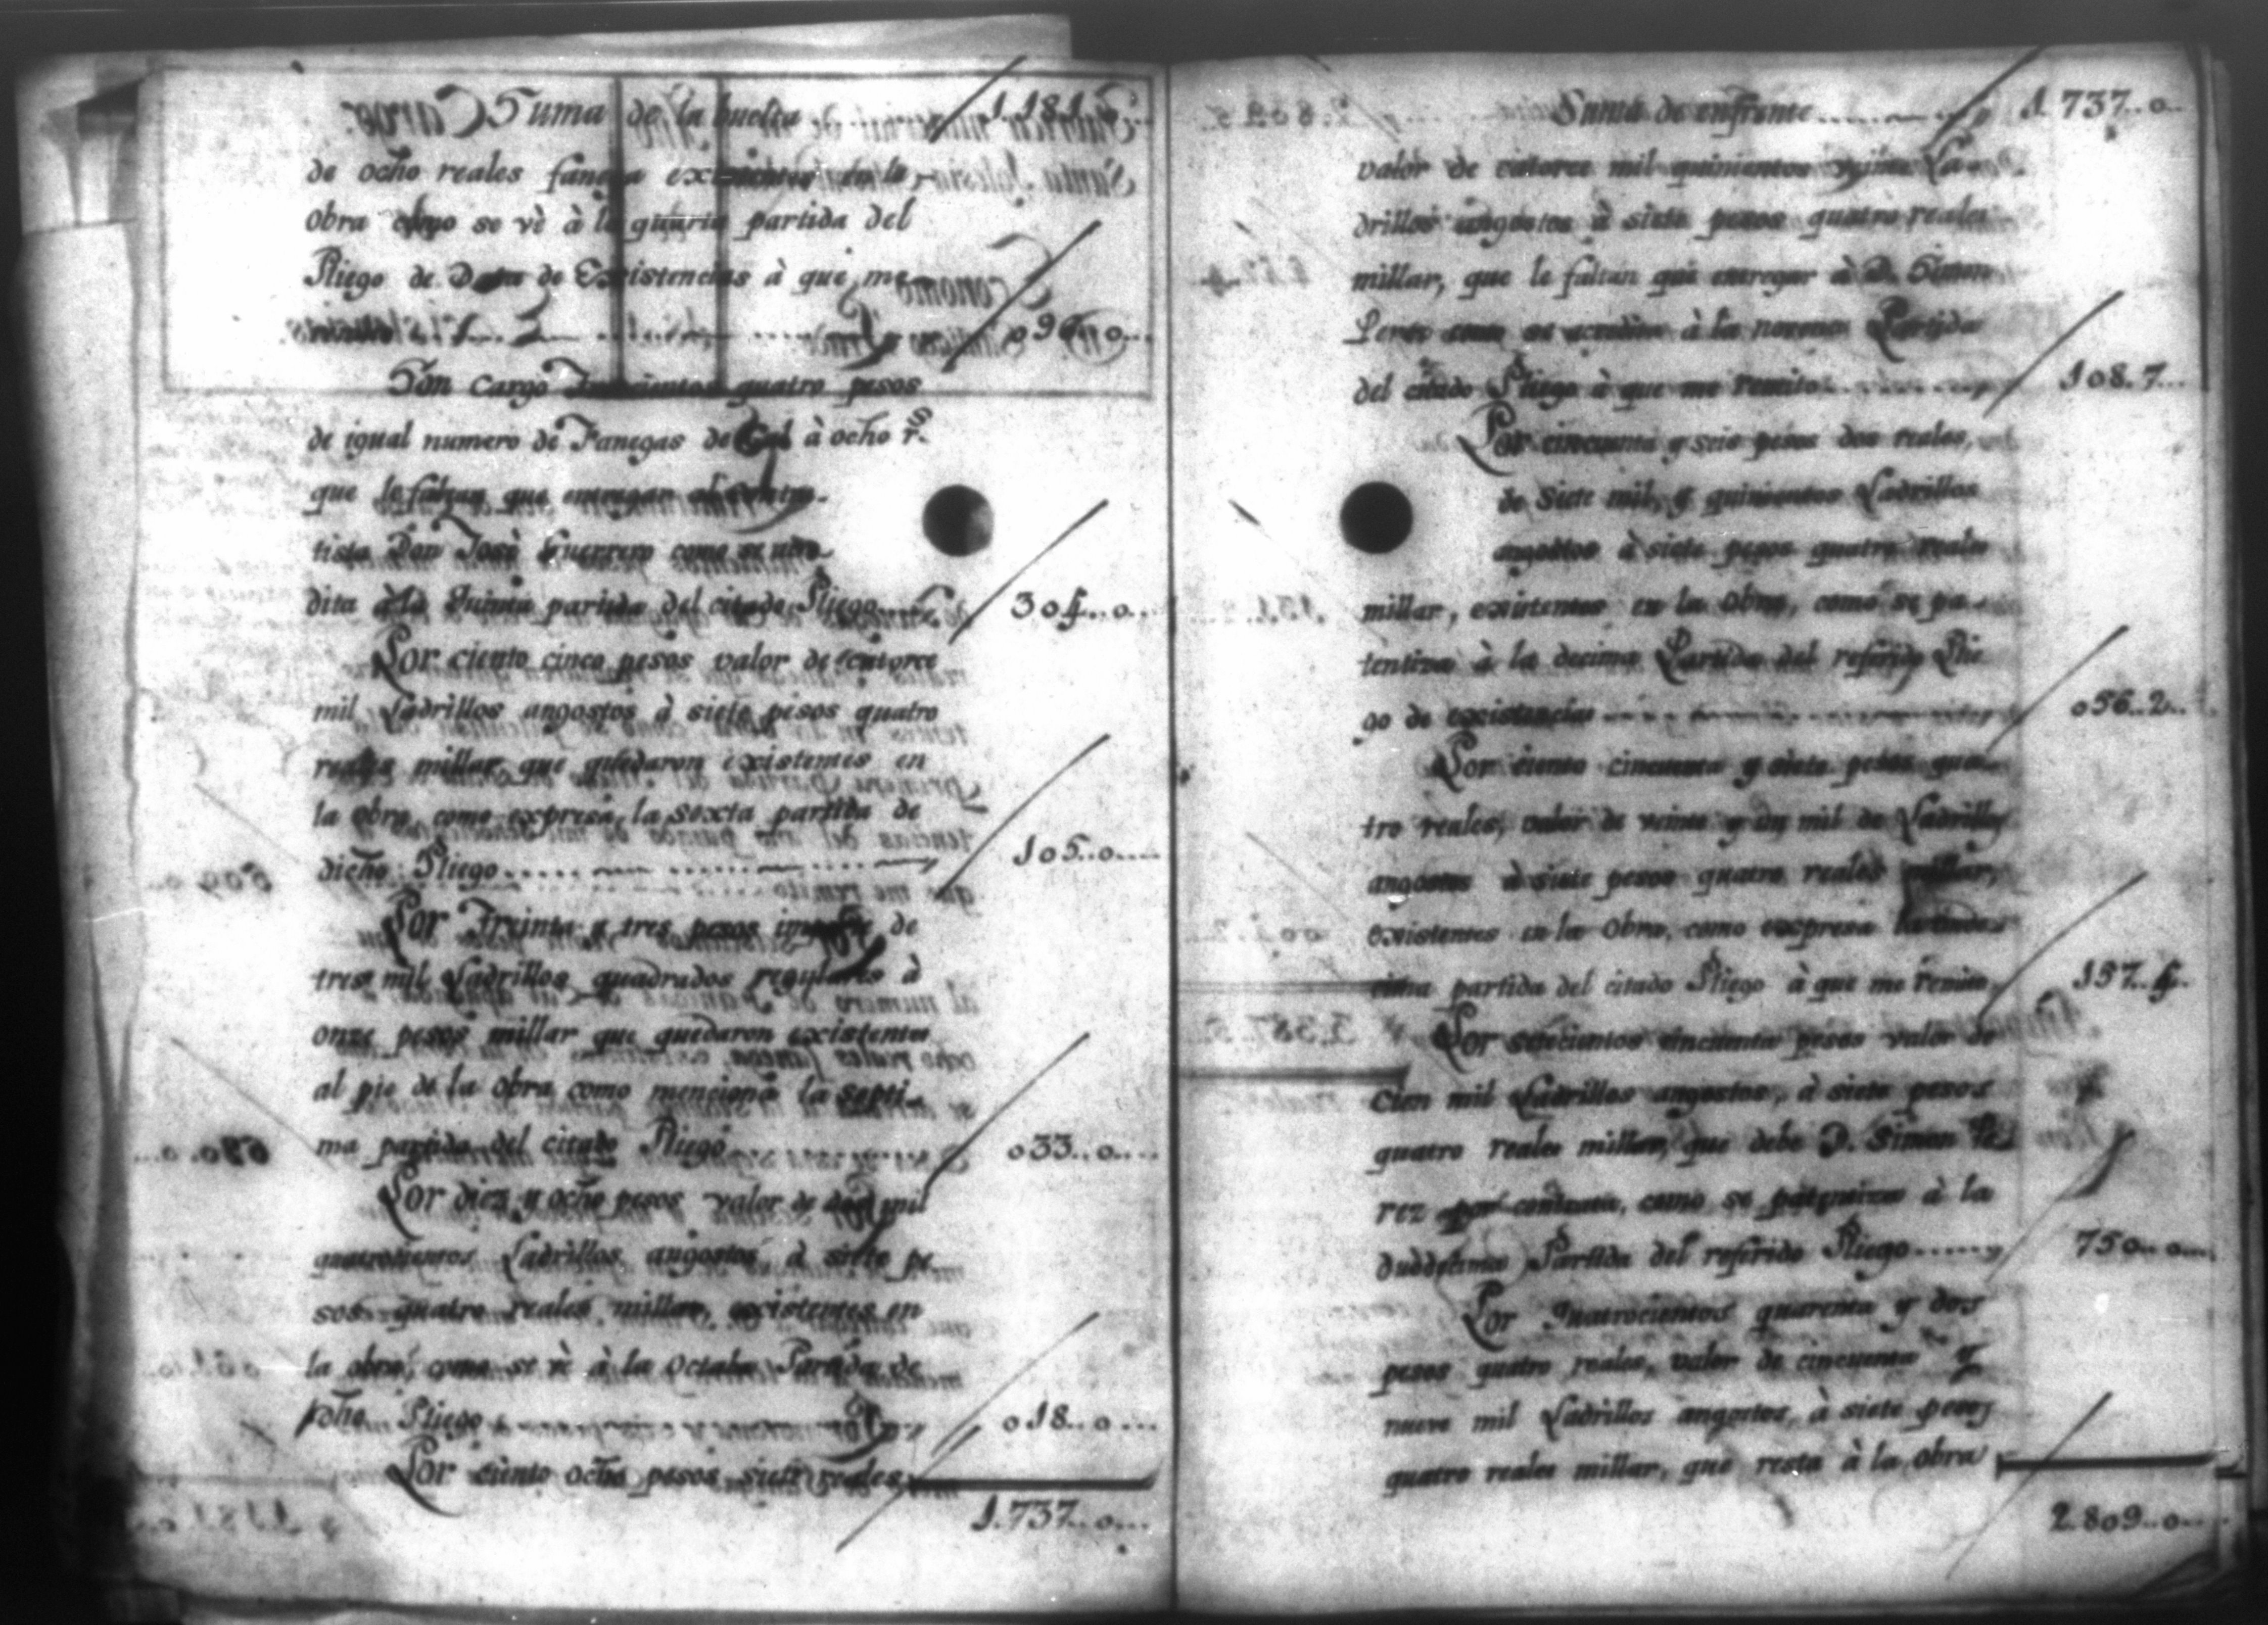 Suma de la buelta 1.181..o..
de ocho reales fanega existentes en la
obra como se vè à la quarta partida del
Pliego de Data de Existencias à que me
o96..o...
Son Cargo Trescientos quatro pesos
de igual numero de Fanegas de Cal à ocho r.s
que le faltan que entregar al contra-
tista Don Josè Guerrero como se acre-
dita à la Quinta partida del citado Pliego 304..o..
Por ciento cinco pesos valor de catorce
mil Ladrillos angostos à siete pesos quatro
reales millar que quedaron existentes en
la obra, como expresa la sexta partida de
dicho Pliego 105..o....
Por Treinta y tres pesos importe de
tres mil Ladrillos quadrados regulares à
onze pesos millar que quedaron existentes
al pie de la obra como menciona la septi-
ma partida del citado Pliego o33..o....
Por diez y ocho pesos valor de dos mil
quatrocientos Ladrillos angostos, à siete pe
sos quatro reales millar, existentes en
la obra, como se vè à la Octaba Partida de
dicho Pliego o18..o...
Por ciento ocho pesos siete reales
1.737..o...
Suma de enfrente 1.737..o..
valor de catorce mil quinientos veinte La-
drillos angostos à siete pesos quatro reales
millar, que le faltan que entregar à D. Simon
Perez como se acredita à la novena Partida
del citado Pliego à que me remito 108.7...
Por cincuenta y seis pesos dos reales,
de siete mil, y quinientos Ladrillos
angostos à siete pesos quatro reales
millar, existentes en la Obra, como se pa-
tentiza à la decima Partida del referido Plie
go de existencias o56..2..
Por ciento cincuenta y siete pesos qua-
tro reales, valor de veinte y un mil de Ladrillos
angostos à siete pesos quatro reales millar,
existentes en la Obra, como expresa la unde-
cima partida del citado Pliego à que me remito 157.4.
Por setecientos cincuenta pesos valor de
Cien mil Ladrillos angostos, à siete pesos
quatro reales millar, que debe D. Simon Pe
rez por contrata, como se patentiza à la
duodecima Partida del referido Pliego 750..o....
Por Quatrocientos quarenta y dos
pesos quatro reales, valor de cincuenta y
nueve mil Ladrillos angostos, à siete pesos
quatro reales millar, que resta à la obra
2.809..o...